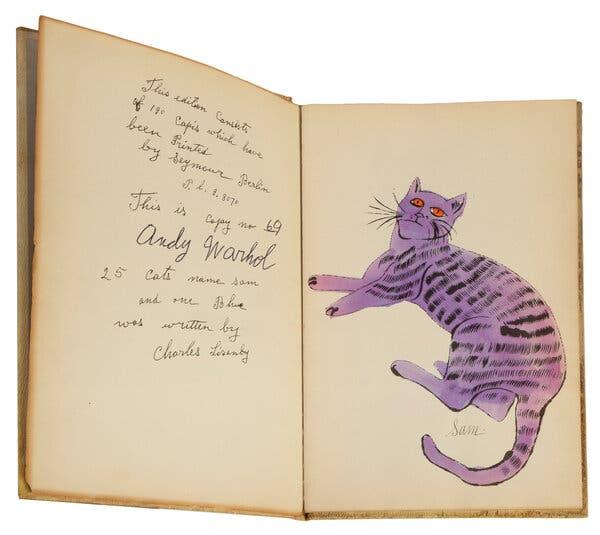 This edition Consists
of 190 Capis which have
been Printed
by Seymour Berlin
P. L. 8. 8070
This is copay no 69
Andy Warhol
25 Cats name sam
and one Blue
was written by
Charles Lisanby
Sam